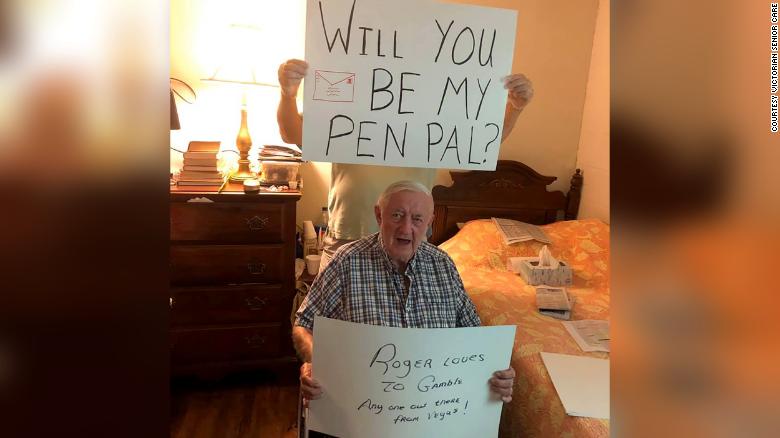 WILL YOU
BE MY
PEN PAL?
ROGER LOVES
TO GAMBLE
Any one out there
from VEGAS!
COURTESY VICTORIAN SENIOR CARE